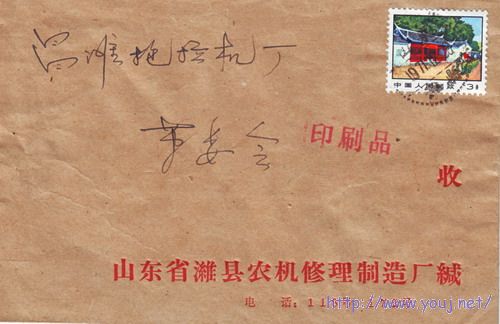 昌潍拖拉机厂
中国人民邮政
革委会
印刷品
收
山东省潍县农机修理制造厂缄
电 话：
http://www.youj.net/